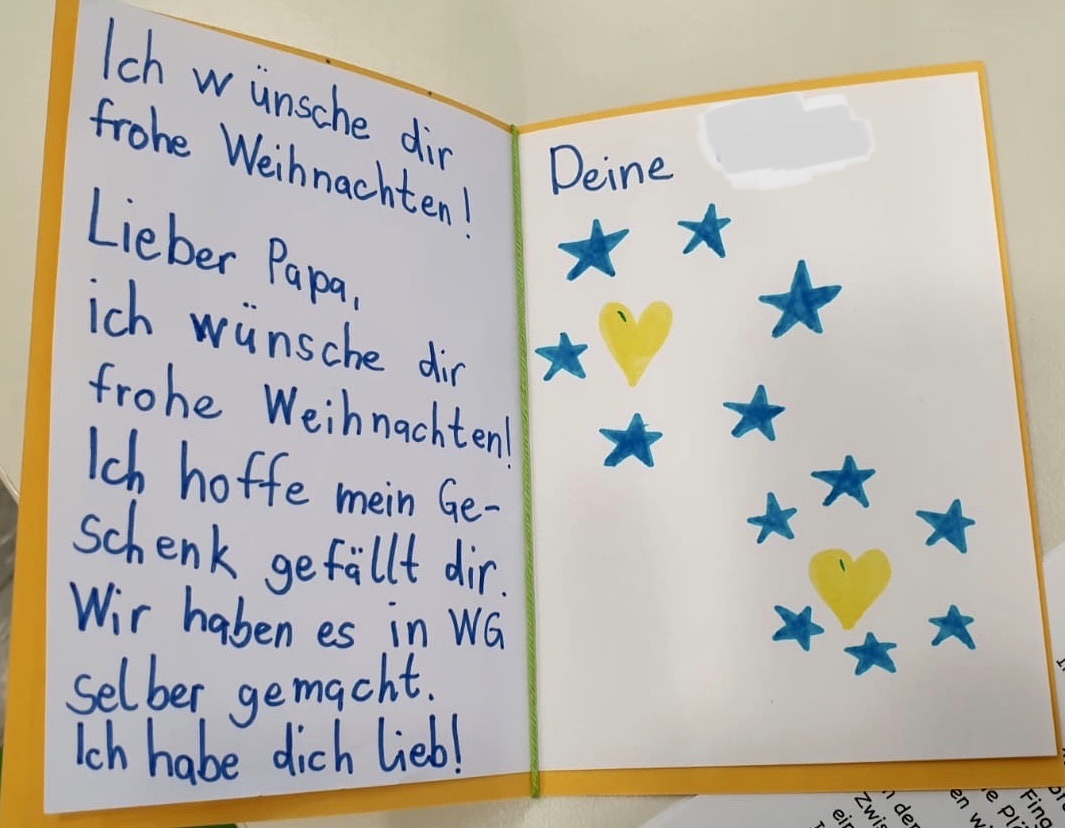 Ich wünsche dir
frohe Weihnachten!
Lieber Papa,
ich wünsche dir
frohe Weihnachten!
Ich hoffe mein Ge-
schenk gefällt dir.
Wir haben es in WG
selber gemacht.
Ich habe dich lieb!
Deine